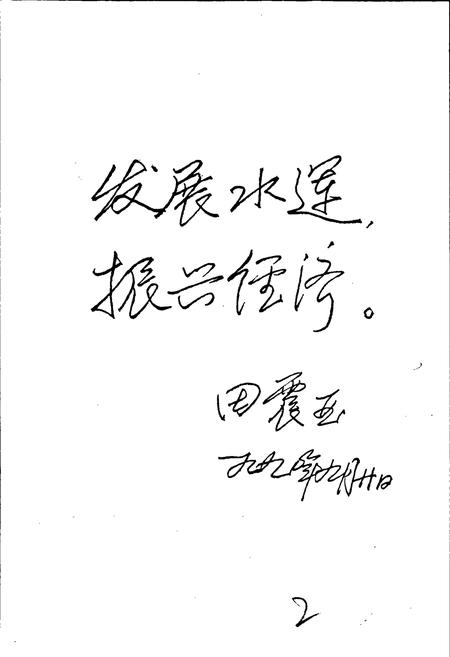 发展水运，
振兴经济。
田震亚
一九九〇年九月廿日
2